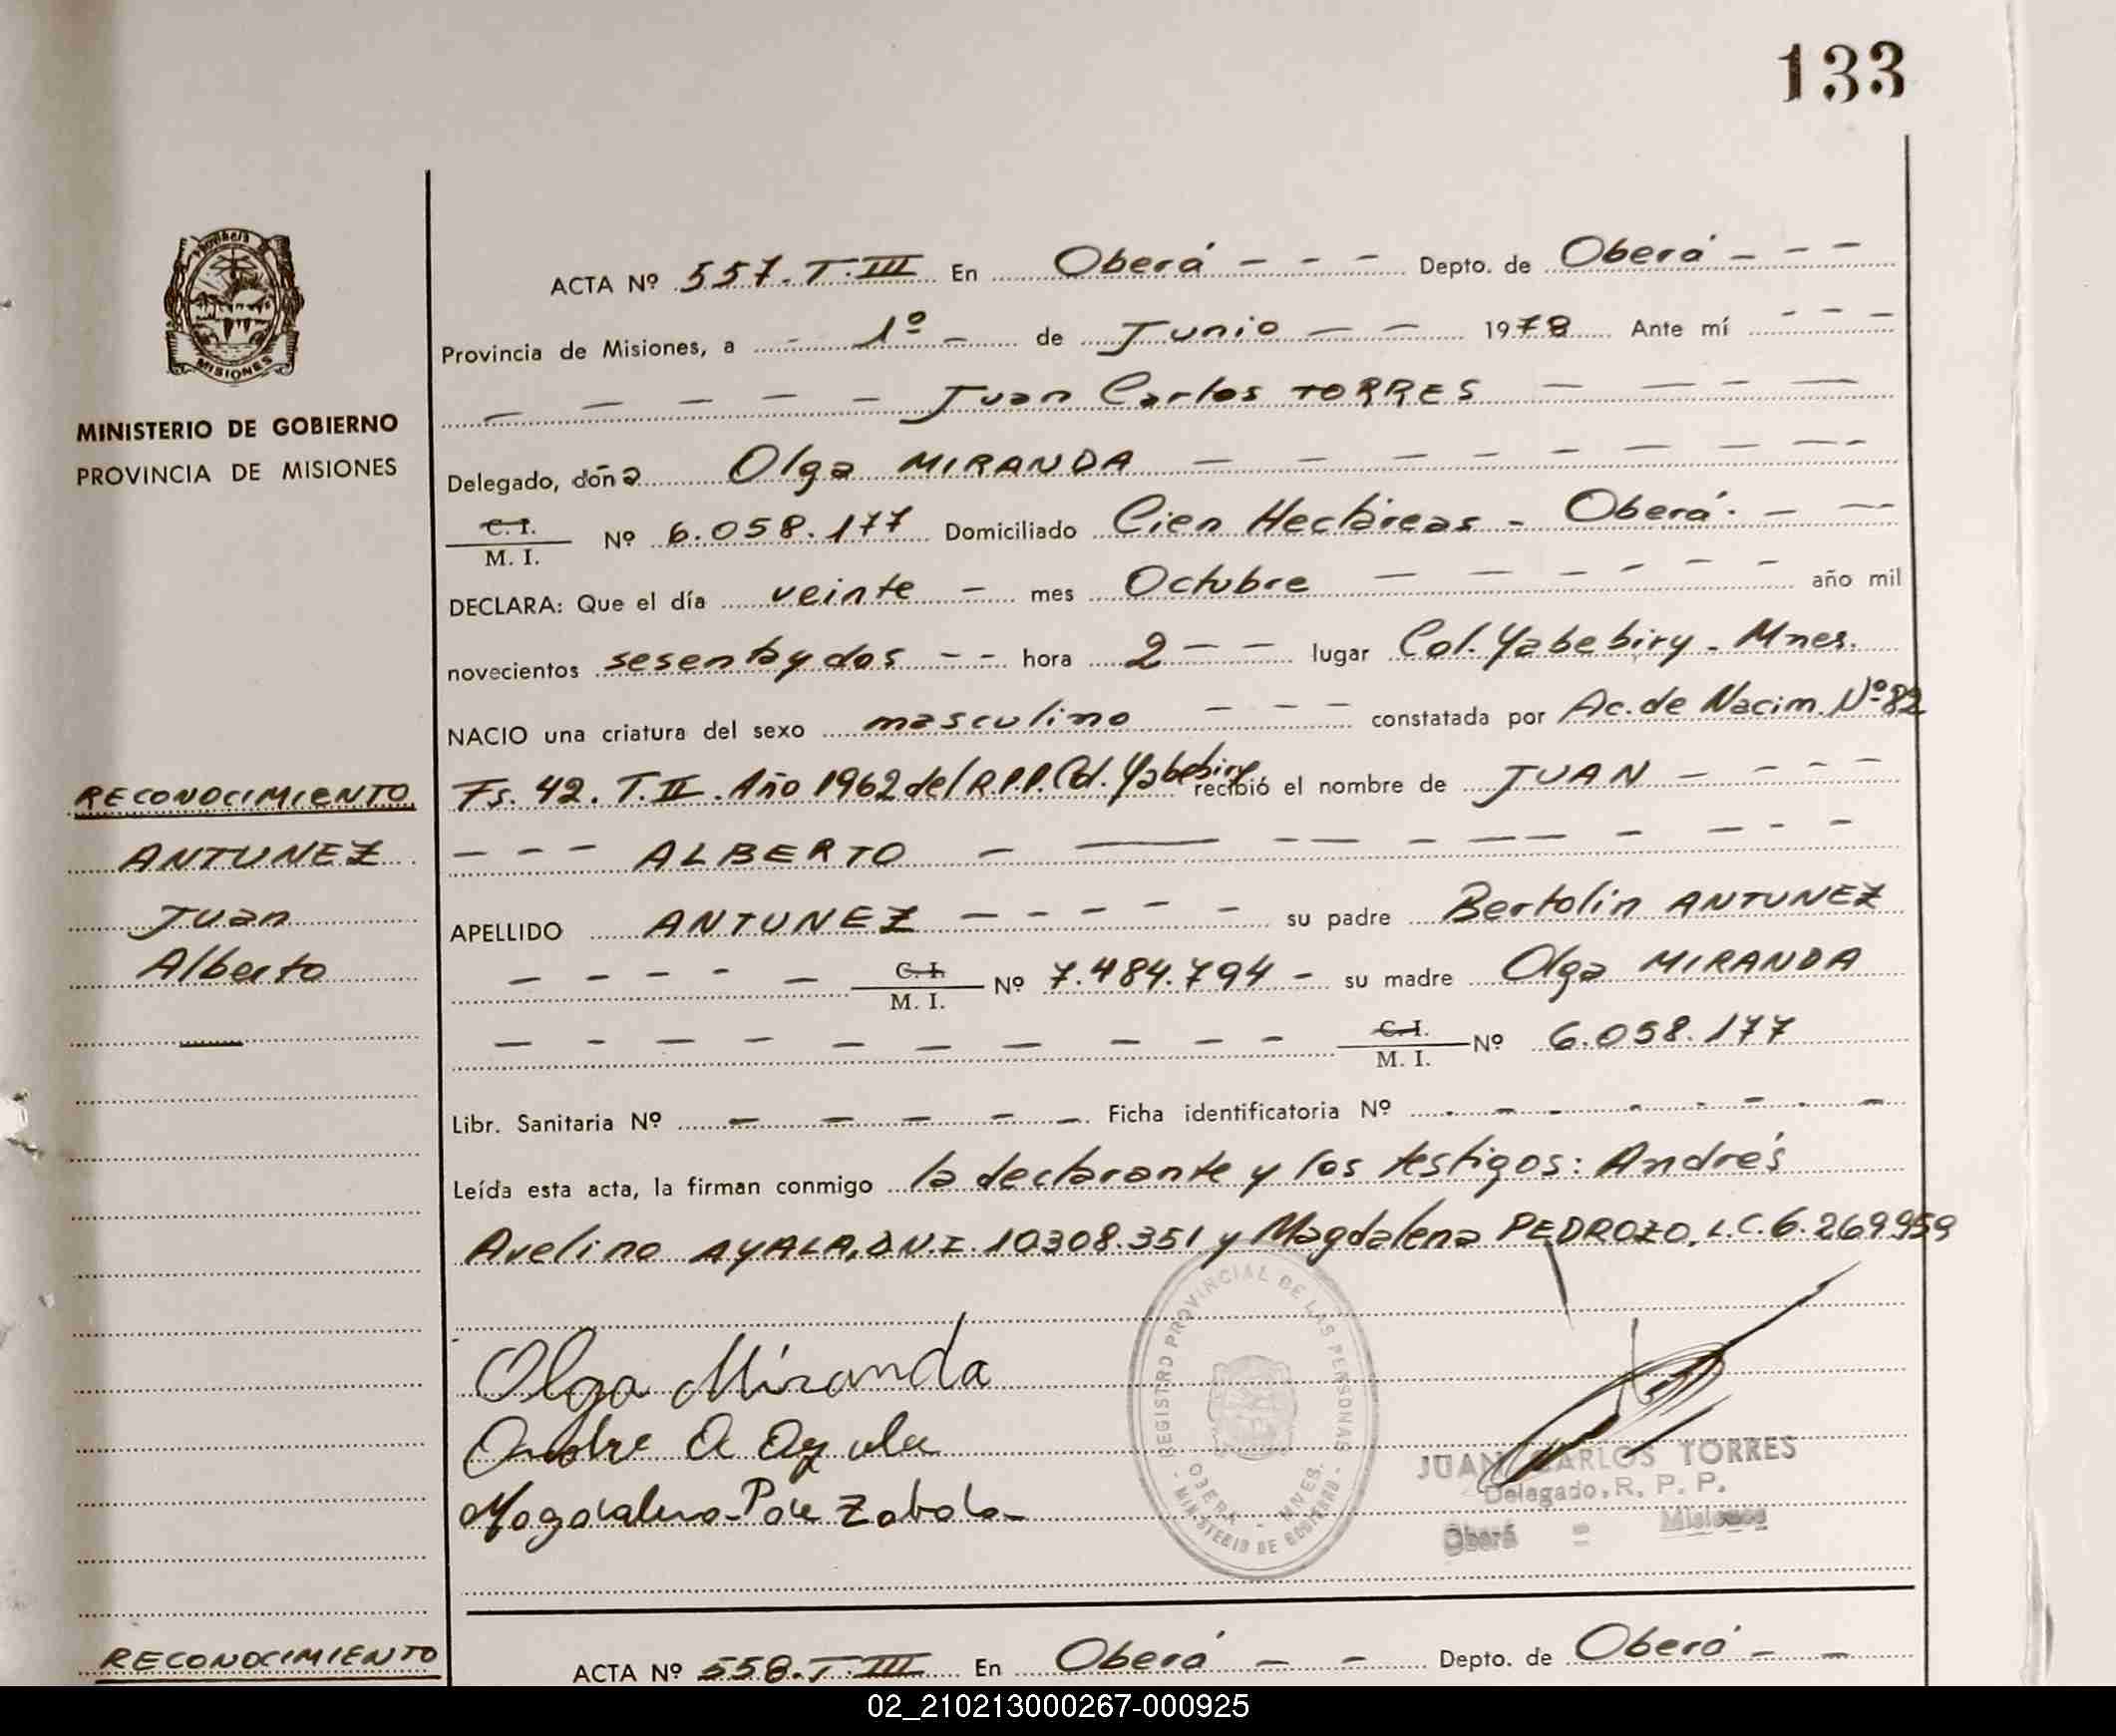 133
MISIONES
MINISTERIO DE GOBIERNO
PROVINCIA DE MISIONES
ACTA Nº 557. T. III En Oberá - - - Depto. de Oberá - - -
Provincia de Misiones, a - 1º - de Junio - - 1978 Ante mí - - -
- - - - - Juan Carlos TORRES - - - -
Delegado, doña Olga MIRANDA - - - - - - - - -
C. I.
M. I. Nº 6.058.177 Domiciliado Cien Hectáreas - Oberá. - - -
DECLARA: Que el día veinte - mes Octubre - - - - - - año mil
novecientos sesenta y dos - - hora 2 - - - lugar Col. Yabebiry - Mnes.
NACIO una criatura del sexo masculino - - - constatada por Ac. de Nacim. Nº 82
Fs. 42. T. II. Año 1962 del R.P.P. Col. Yabebiry recibió el nombre de JUAN - - - -
- - - ALBERTO - - - - - - - - - -
APELLIDO ANTUNEZ - - - - - su padre Bertolin ANTUNEZ
- - - - - C. I.
M. I. Nº 7.484.794 - su madre Olga MIRANDA
- - - - - - - - - - C. I.
M. I. Nº 6.058.177
Libr. Sanitaria Nº - - - - - Ficha identificatoria Nº - - - - - - - -
Leída esta acta, la firman conmigo la declarante y los testigos: Andrés
Avelino AYALA, D.N.I. 10308.351 y Magdalena PEDROZO, L.C. 6.269959
RECONOCIMIENTO
ANTUNEZ
Juan
Alberto
Olga Miranda
Andre A Ayala
Magdalena
REGISTRO PROVINCIAL DE LAS PERSONAS
OBERA - MNES.
- MINISTERIO DE GOBIERNO -
JUAN CARLOS TORRES
Delegado, R. P. P.
Oberá - Misiones
RECONOCIMIENTO
ACTA Nº 558. T. III En Oberá - - Depto. de Oberá - -
02_210213000267-000925